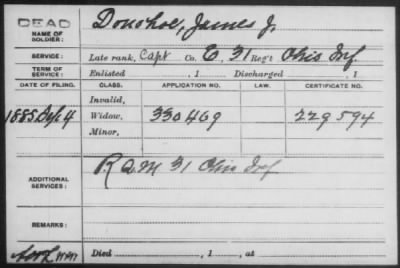 DEAD
NAME OF SOLDIER: Donohoe, James J.
SERVICE: Late rank, Capt Co. E, 31 Reg't Ohio Inf.
TERM OF SERVICE: Enlisted , 1 Discharged , 1
DATE OF FILING. CLASS. APPLICATION NO. LAW. CERTIFICATE NO.
Invalid,
1885. Sep. 4 Widow, 330469 229594
Minor,
ADDITIONAL SERVICES: R.Q.M 31 Ohio Inf
REMARKS:
Died , 1 , at